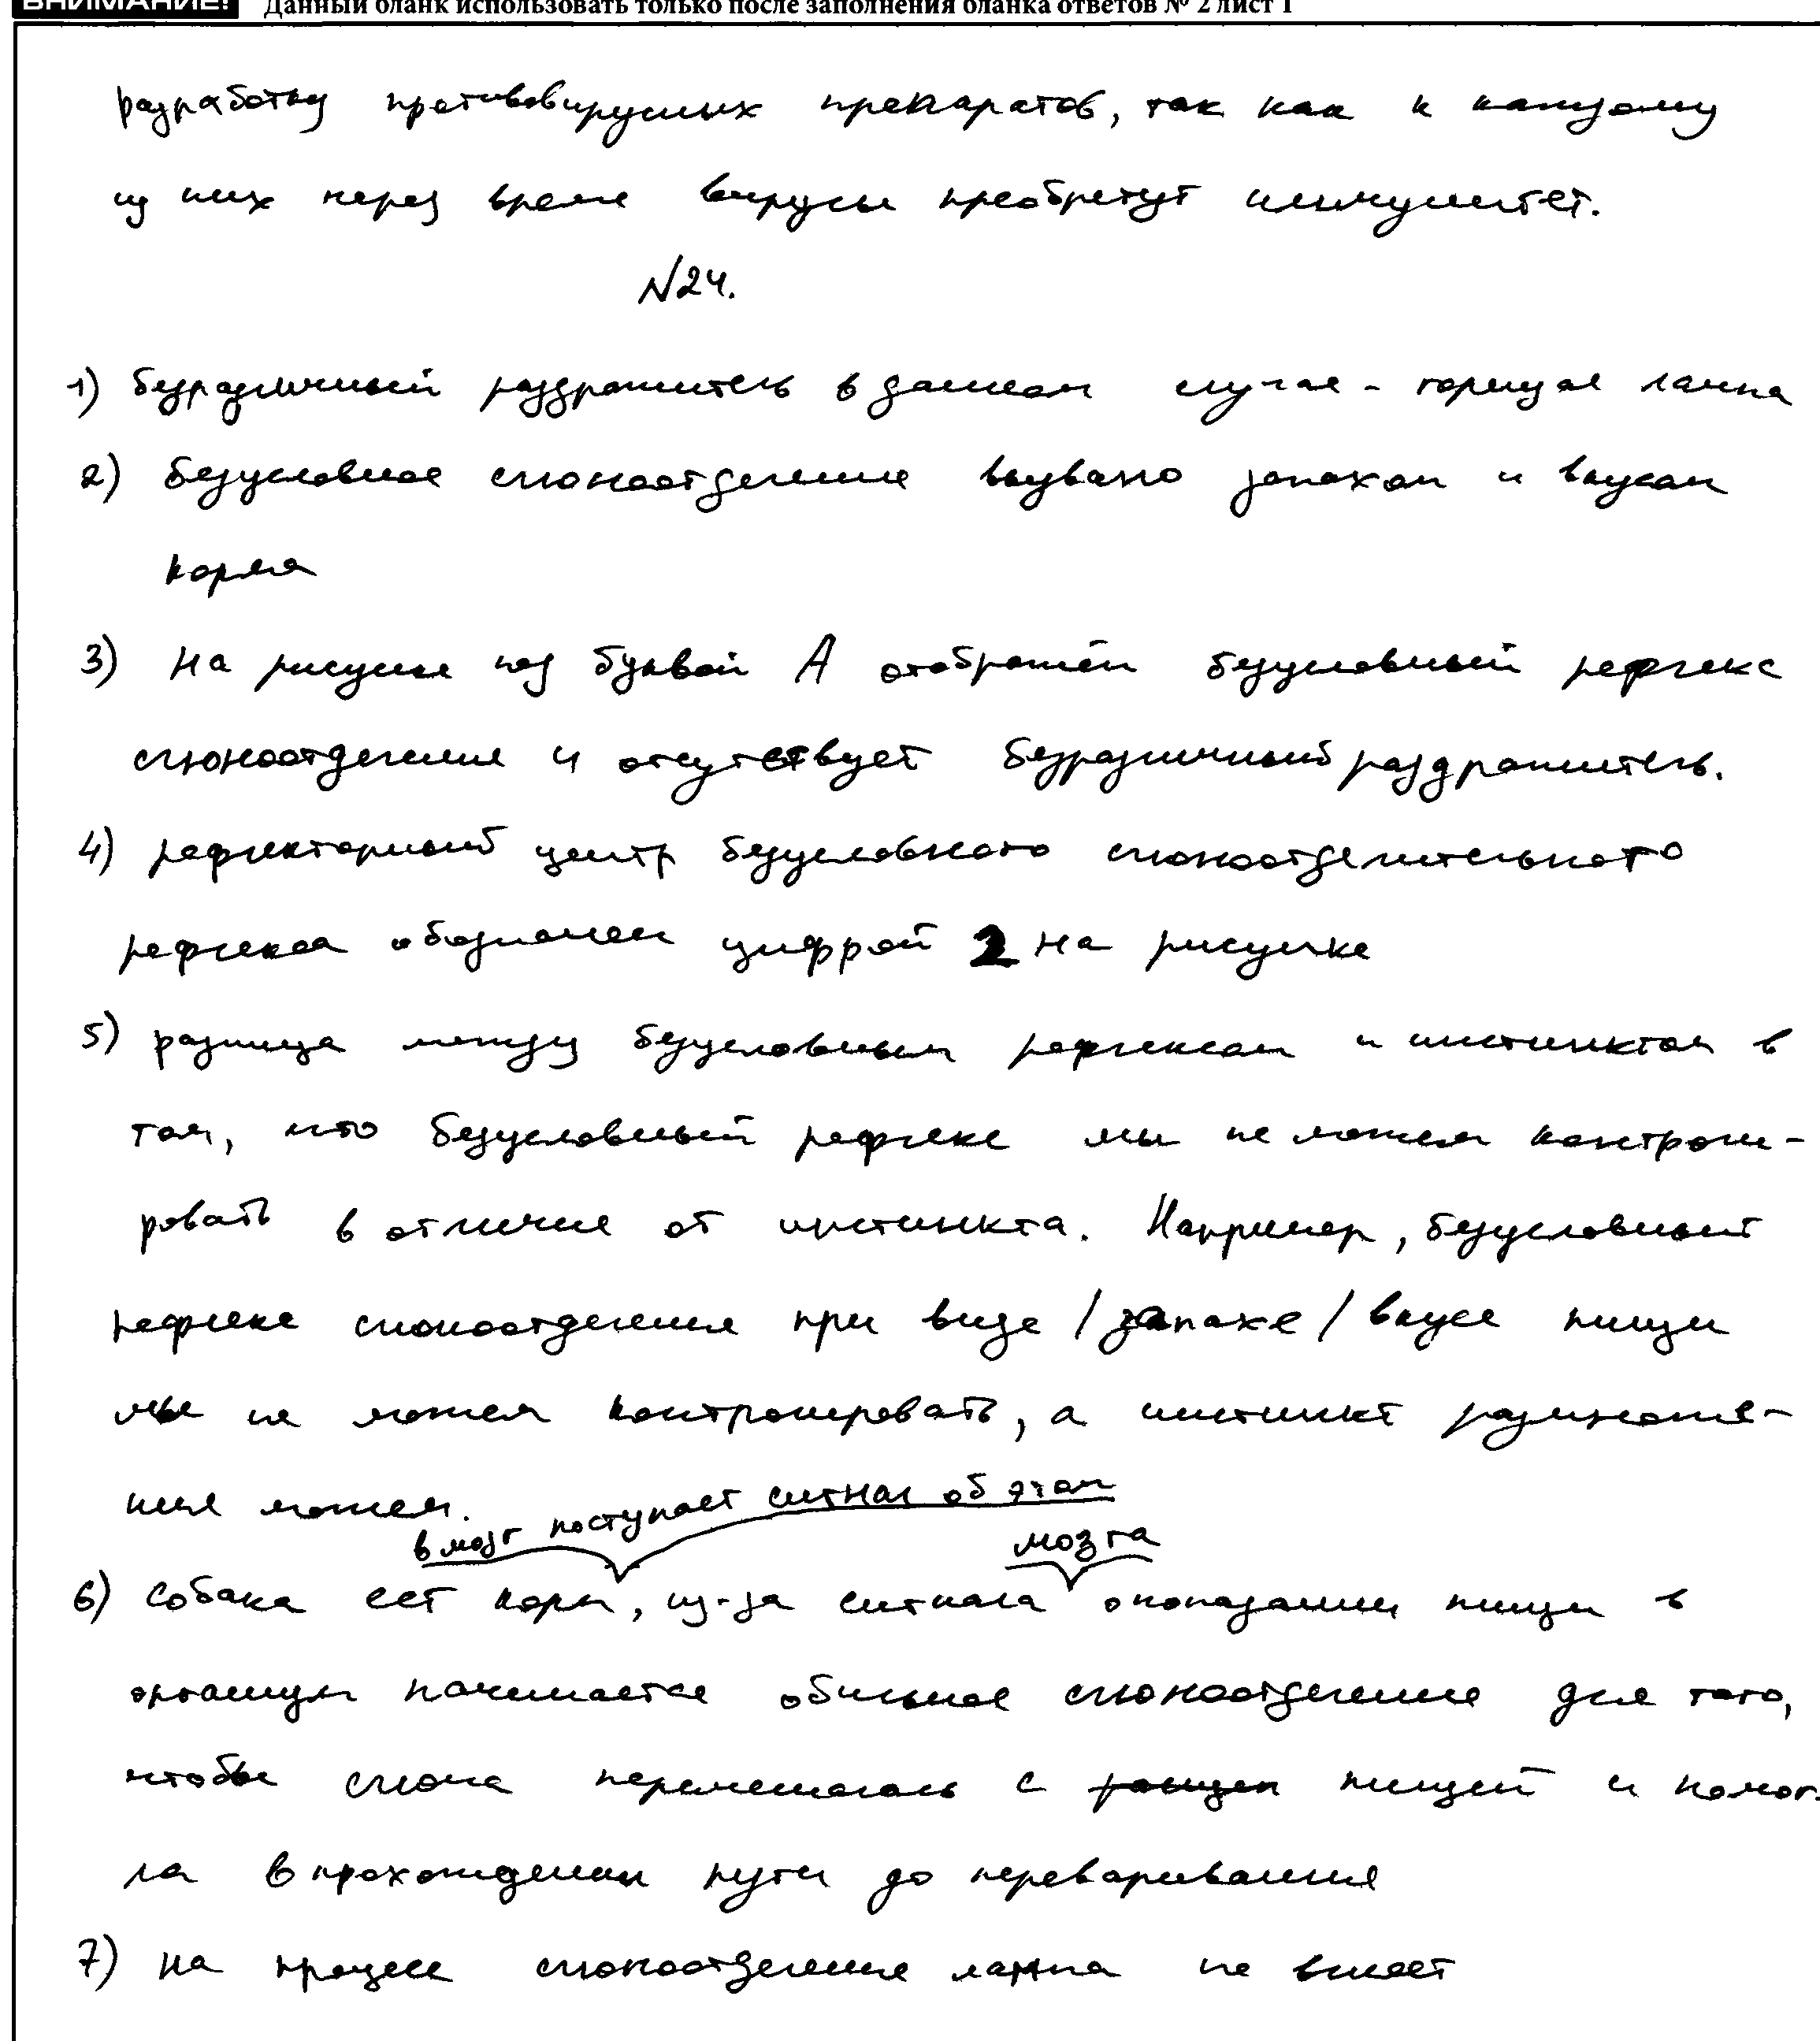 ВНИМАНИЕ! Данный бланк использовать только после заполнения бланка ответов № 2 лист 1
разработку противовирусных препаратов, так как к каждому
из них через время вирусы преобретут иммунитет.
№24.
1) безразличный раздражитель в данном случае - горящая лампа
2) безусловное слюноотделение вызвано запахом и вкусом
корма
3) На рисунке под буквой А отображён безусловный рефлекс
слюноотделения и отсутствует безразличный раздражитель.
4) рефлекторный центр безусловного слюноотделительного
рефлекса обозначен цифрой 2 на рисунке
5) разница между безусловным рефлексом и инстинктом в
том, что безусловный рефлекс мы не можем контроли-
ровать в отличие от инстинкта. Например, безусловный
рефлекс слюноотделения при виде / запахе / вкусе пищи
мы не можем контролировать, а инстинкт размноже-
ния можем.
в мозг поступает сигнал об этом
мозга
6) Собака ест корм, из-за сигнала о попадании пищи в
организм начинается обильное слюноотделение для того,
чтобы слюна перемешалась с пищей и помог-
ла в прохождении пути до переваривания
7) На процесс слюноотделения лампа не влияет